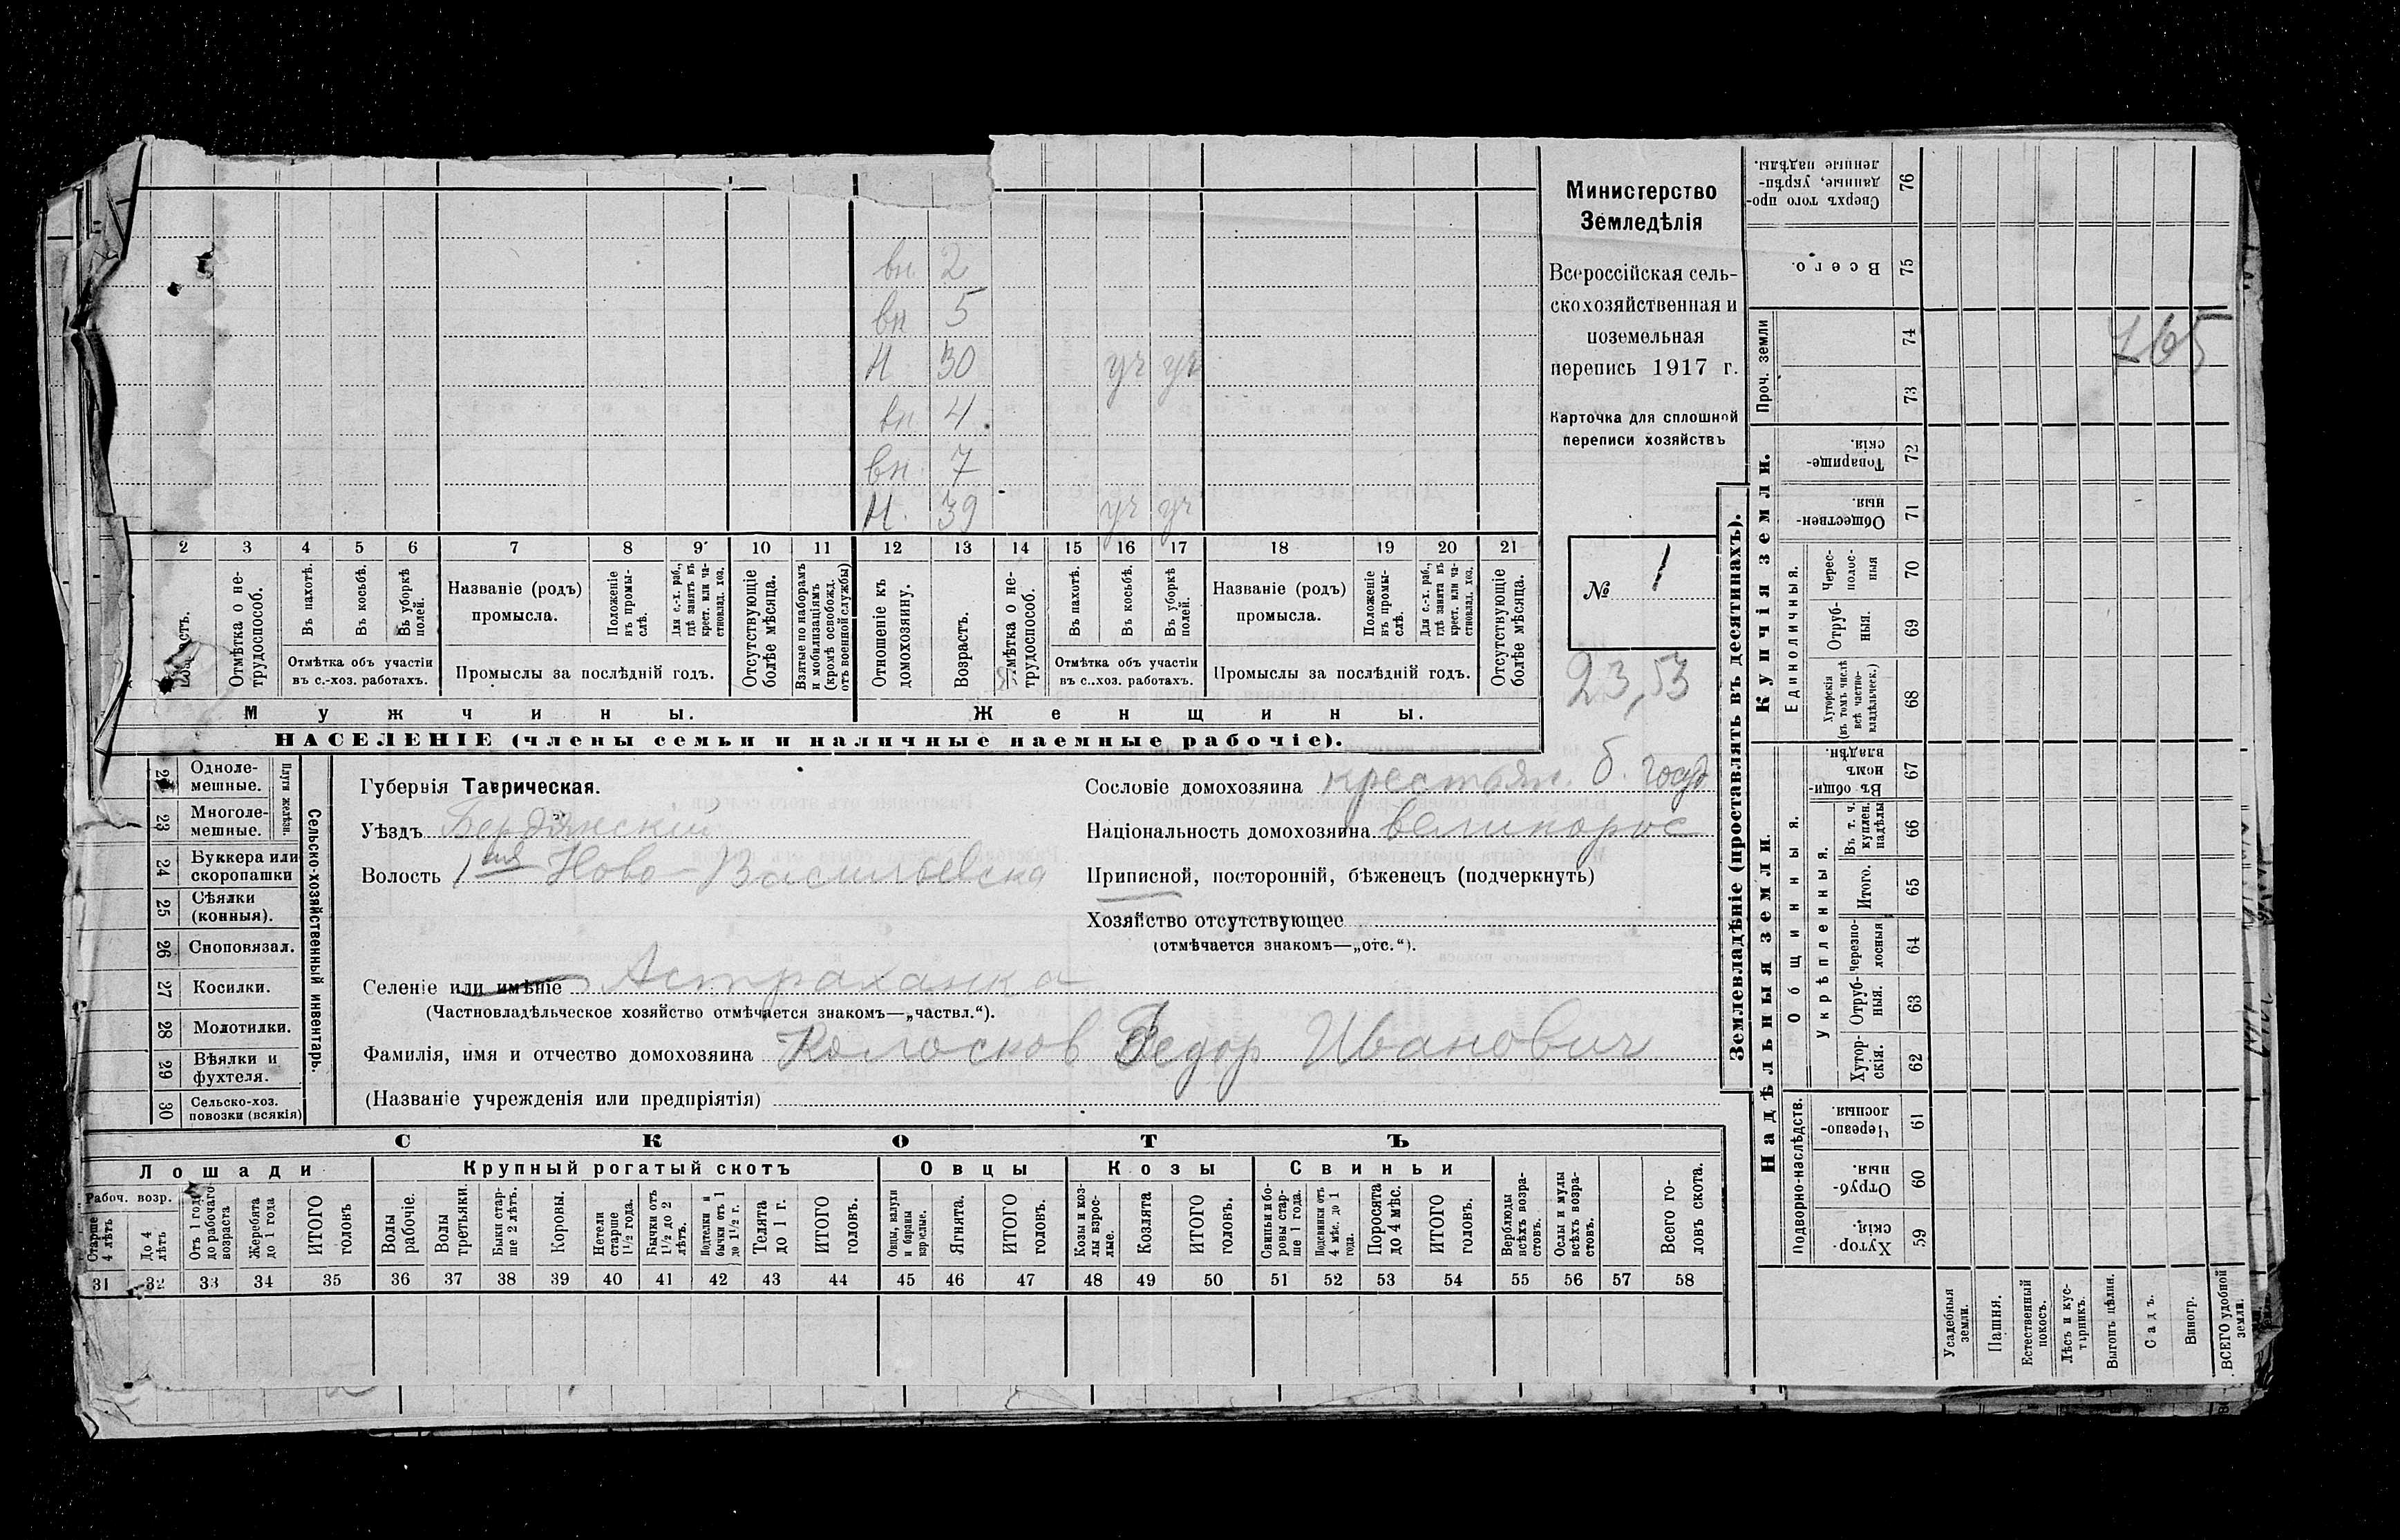 вн. 2
вн 5
Н 30 уч уч
вн 4
вн. 7
Н. 39 уч уч
2 3 4 5 6 7 8 9 10 11 12 13 14 15 16 17 18 19 20 21
Отмѣтка о нетрудоспособ.
Въ пахотѣ.
Въ косьбѣ.
Въ уборкѣ полей.
Отмѣтка объ участіи
въ с.-хоз. работахъ.
Названіе (родъ)
промысла.
Положеніе въ промыслѣ.
Для с.-х. раб., гдѣ занятъ въ крест. или частновлад. хоз.
Промыслы за послѣдній годъ.
Отсутствующіе болѣе мѣсяца.
Взятые по наборамъ и мобилизаціямъ (кромѣ освобожд. отъ военной службы)
Отношеніе къ домохозяину.
Возрастъ.
Отмѣтка о нетрудоспособ.
Въ пахотѣ.
Въ косьбѣ.
Въ уборкѣ полей.
Отмѣтка объ участіи
въ с.-хоз. работахъ.
Названіе (родъ)
промысла.
Положеніе въ промыслѣ.
Для с.-х. раб., гдѣ занята въ крест. или частновлад. хоз.
Промыслы за послѣдній годъ.
Отсутствующіе болѣе мѣсяца.
Мужчины.
Женщины.
НАСЕЛЕНІЕ (члены семьи и наличные наемные рабочіе).
Министерство
Земледѣлія
Всероссійская сель-
скохозяйственная и
поземельная
перепись 1917 г.
Карточка для сплошной
переписи хозяйствъ
№ 1
23,53
Плуги желѣзн.
Однолемешные.
23 Многолемешные.
24 Буккера или скоропашки
25 Сѣялки (конныя).
26 Сноповязал.
27 Косилки.
28 Молотилки.
29 Вѣялки и фухтеля.
30 Сельско-хоз. повозки (всякія)
Сельско-хозяйственный инвентарь.
Губернія Таврическая.
Уѣздъ Бердянский
Волость 1ая Ново-Васильевска
Сословіе домохозяина крестьян. б. госуд
Національность домохозяина великорос
Приписной, посторонній, бѣженецъ (подчеркнуть)
Хозяйство отсутствующее
(отмѣчается знакомъ—„отс.“).
Селеніе или имѣніе Астраханка
(Частновладѣльческое хозяйство отмѣчается знакомъ—„частвл.“).
Фамилія, имя и отчество домохозяина Колосков Федор Иванович
(Названіе учрежденія или предпріятія)
СКОТЪ
Лошади
Крупный рогатый скотъ
Овцы
Козы
Свиньи
Рабоч. возр.
Старше 4 лѣтъ
До 4 лѣтъ
Отъ 1 года до рабочаго возраста
Жеребята до 1 года
ИТОГО головъ
Волы рабочіе.
Волы третьяки.
Быки старше 2 лѣтъ.
Коровы.
Нетели старше 1½ года.
Бычки отъ 1½ до 2 лѣтъ.
Подтелки и бычки отъ 1 до 1½ г.
Телята до 1 г.
ИТОГО головъ.
Овцы, валухи и бараны взрослые.
Ягнята.
ИТОГО головъ.
Козы и козлы взрослые.
Козлята
ИТОГО головъ.
Свиньи боровы старше 1 года.
Подсвинки отъ 4 мѣс. до 1 года.
Поросята до 4 мѣс.
ИТОГО головъ.
Верблюды всѣхъ возрастовъ.
Ослы и мулы всѣхъ возрастовъ.
Всего головъ скота.
31 32 33 34 35 36 37 38 39 40 41 42 43 44 45 46 47 48 49 50 51 52 53 54 55 56 57 58
Землевладѣніе (проставлять въ десятинахъ).
Надѣльныя земли.
Купчія земли.
Проч. земли
Подворно-наслѣдств.
Общинныя.
Укрѣпленныя.
Единоличныя.
Сверхъ того проданные, укрѣпленные надѣлы. 76
Всего. 75
74
73
Товарищескія. 72
Общественныя 71
Черезполосныя 70
Отрубныя. 69
Хуторскія (въ томъ числѣ всѣ частновладѣльческ.) 68
Въ общинномъ владѣн. 67
Въ т. ч. куплен. надѣлы 66
Итого. 65
Черезполосныя 64
Отрубныя. 63
Хуторскія. 62
Черезполосныя. 61
Отрубныя. 60
Хуторскія. 59
Усадебныя земли.
Пашня.
Естественный покосъ.
Лѣсъ и кустарникъ.
Выгонъ цѣлин.
Садъ.
Виногр.
ВСЕГО удобной земли.